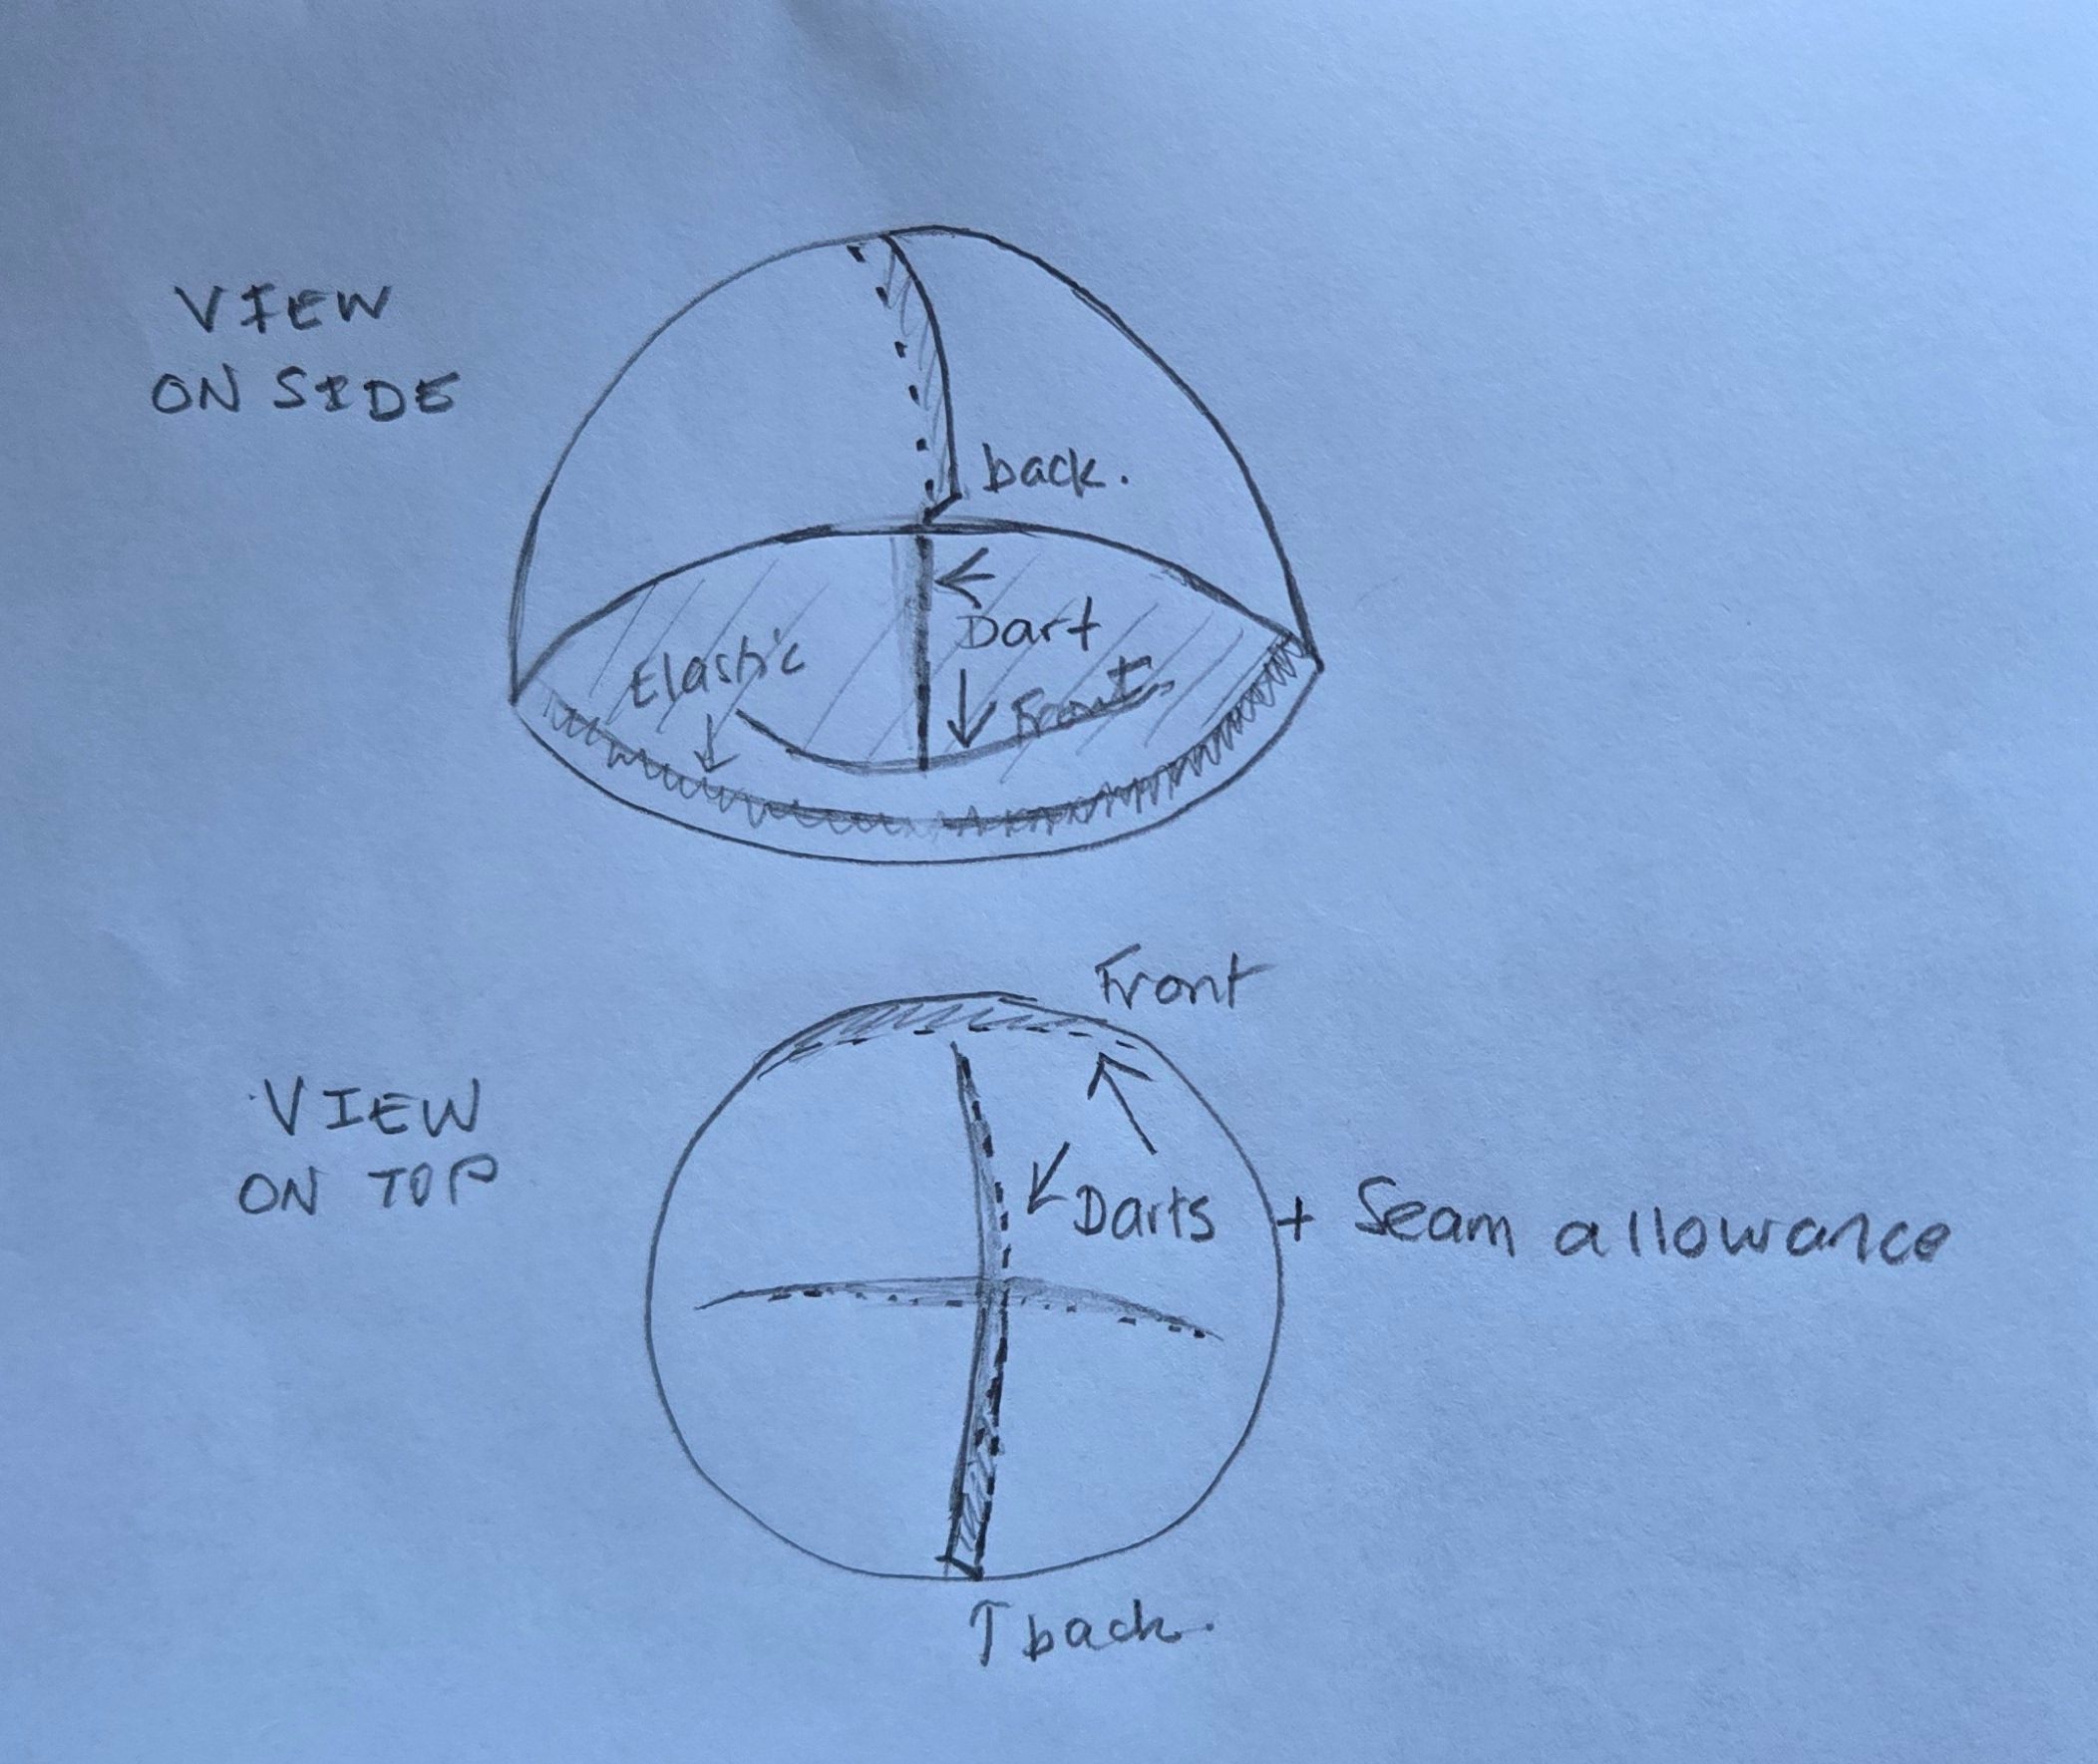 VIEW
ON SIDE
back.
Dart
Elastic
Front
VIEW
ON TOP
Front
Darts + Seam allowance
back.